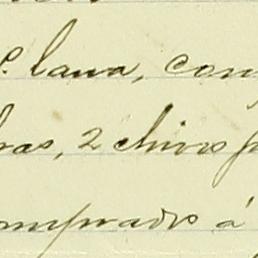 lana, con
ras, 2 chivos
comprados á